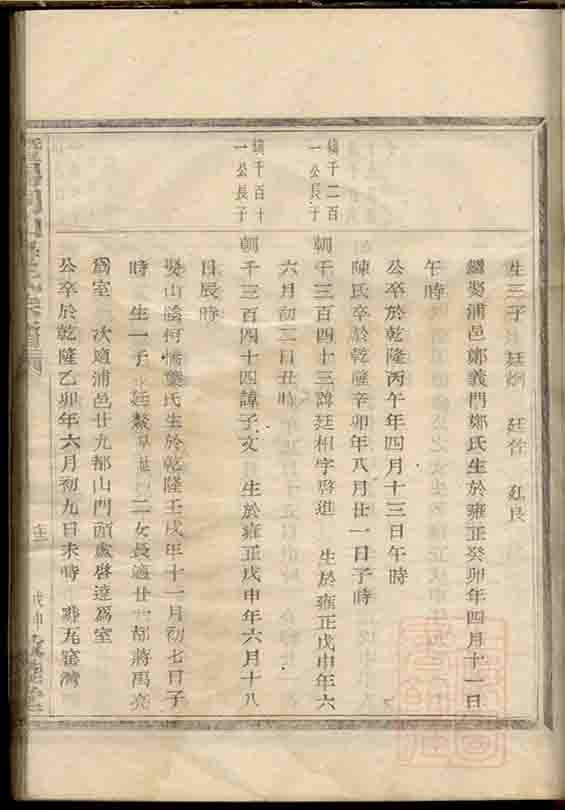 生三子 廷炯 廷佾 廷良
繼娶浦邑鄭義門鄭氏生於雍正癸卯年四月十一日
午時
公卒於乾隆丙午年四月十三日午時
陳氏卒於乾隆辛卯年八月廿一日子時
鎮千二百一公長子
朝千三百四十三諱廷相字啓進 生於雍正戊申年六
六月初三日丑時
鎮千百十一公長子
朝千三百四十四諱子文 生於雍正戊申年六月十八
日辰時
娶山陰柯橋葉氏生於乾隆壬戌年十一月初七日子
時 生一子 廷鰲 二女長適廿一都蔣禹亮
爲室 次適浦邑廿九都山門頭盧啓達爲室
公卒於乾隆乙卯年六月初九日未時 瓦窰灣
戊申